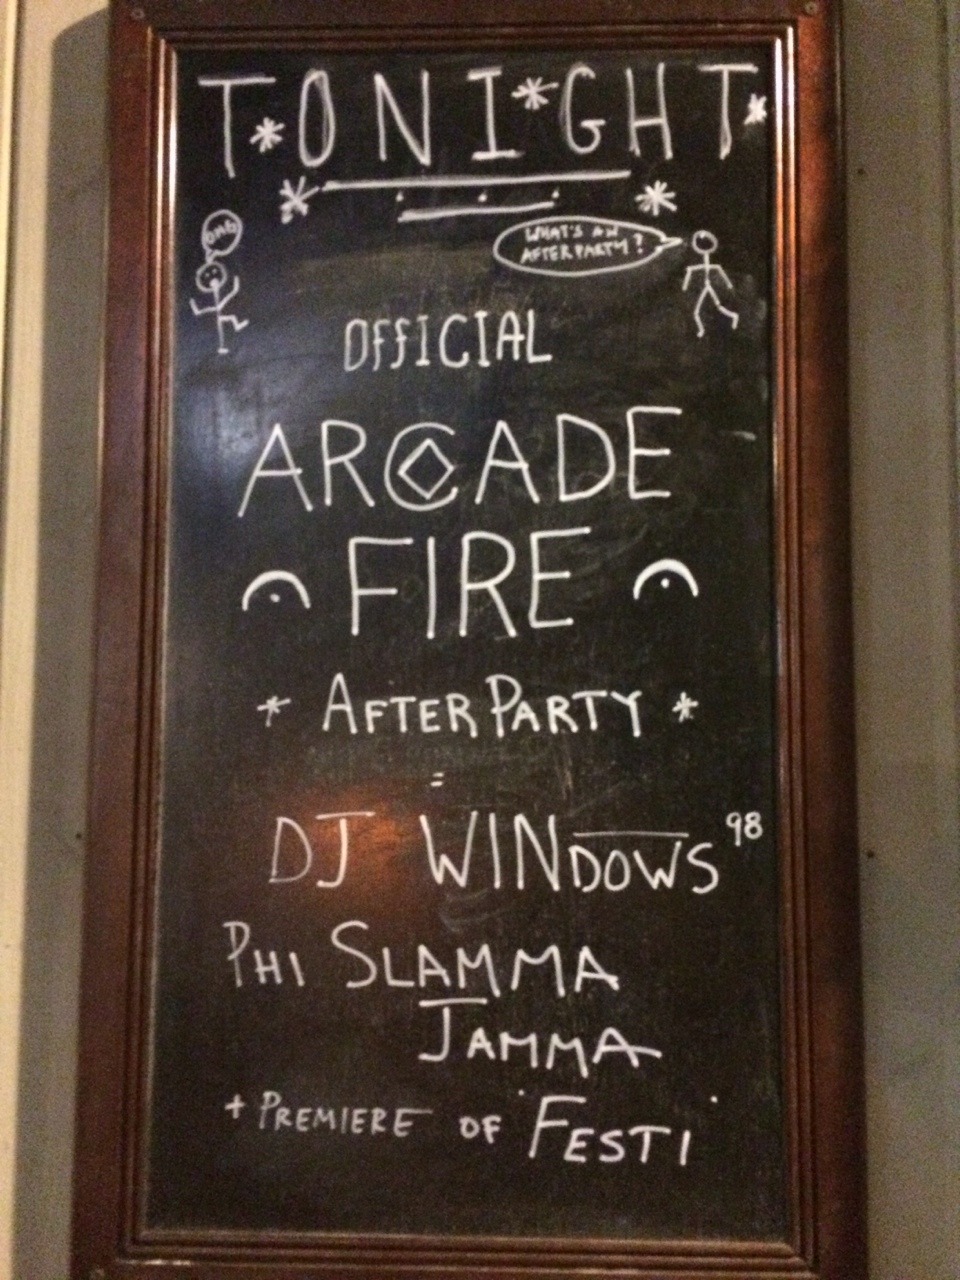 T*ONI*GHT*
OMG
WHAT'S AN
AFTERPARTY?
OFFICIAL
ARCADE
FIRE
* AFTER PARTY *
=
DJ WINDOWS 98
PHI SLAMMA
JAMMA
+ PREMIERE OF 'FESTI'